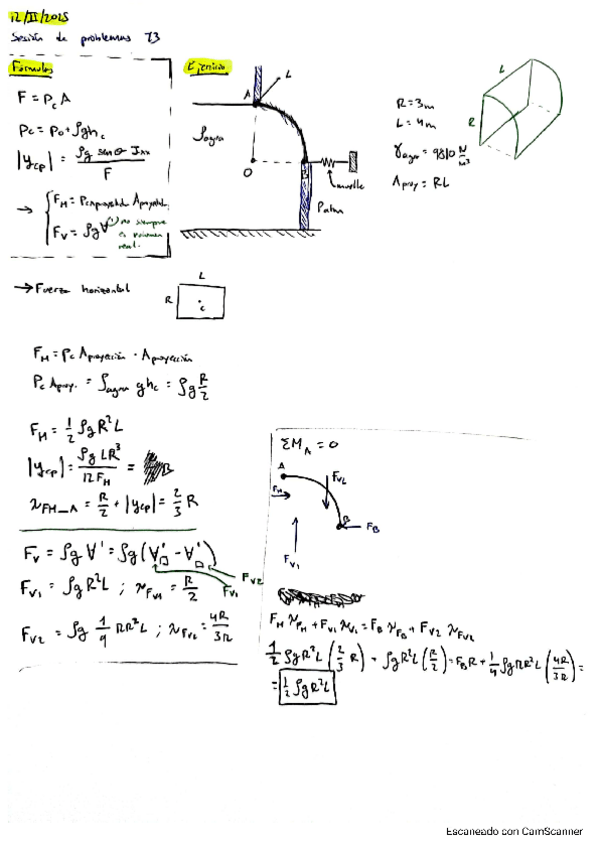 12/II/2025
Sesión de problemas T3
Fórmulas
F = Pc A
Pc = P0 + ρghc
|ycp| = ρg senθ Ixx / F
→ { FH = Pc Aproyectada Aproyectada
FV = ρg∀' no siempre es volumen real.
Ejercicio
A
L
ρagua
O
B
muelle
Palma
R = 3m
L = 4m
γagua = 9810 N/m³
Aproy = RL
L
R
→ Fuerza horizontal
L
R
c
FH = Pc Aproyección · Aproyección
Pc Aproy. = ρagua ghc = ρg R/2
FH = 1/2 ρgR²L
|ycp| = ρg LR³ / 12 FH =
xFH_A = R/2 + |ycp| = 2/3 R
FV = ρg ∀' = ρg(∀'□ - ∀'□)
FV1
FV2
FV1 = ρgR²L ; xFV1 = R/2
FV2 = ρg 1/4 πR²L ; xFV2 = 4R/3π
ΣMA = 0
A
FH
FV2
B
FB
FV1
FH xFH + FV1 xFV1 = FB xFB + FV2 xFV2
1/2 ρgR²L (2/3 R) + ρgR²L (R/2) = FB R + 1/4 ρgπR²L (4R/3π) =
= 1/2 ρgR²L
Escaneado con CamScanner